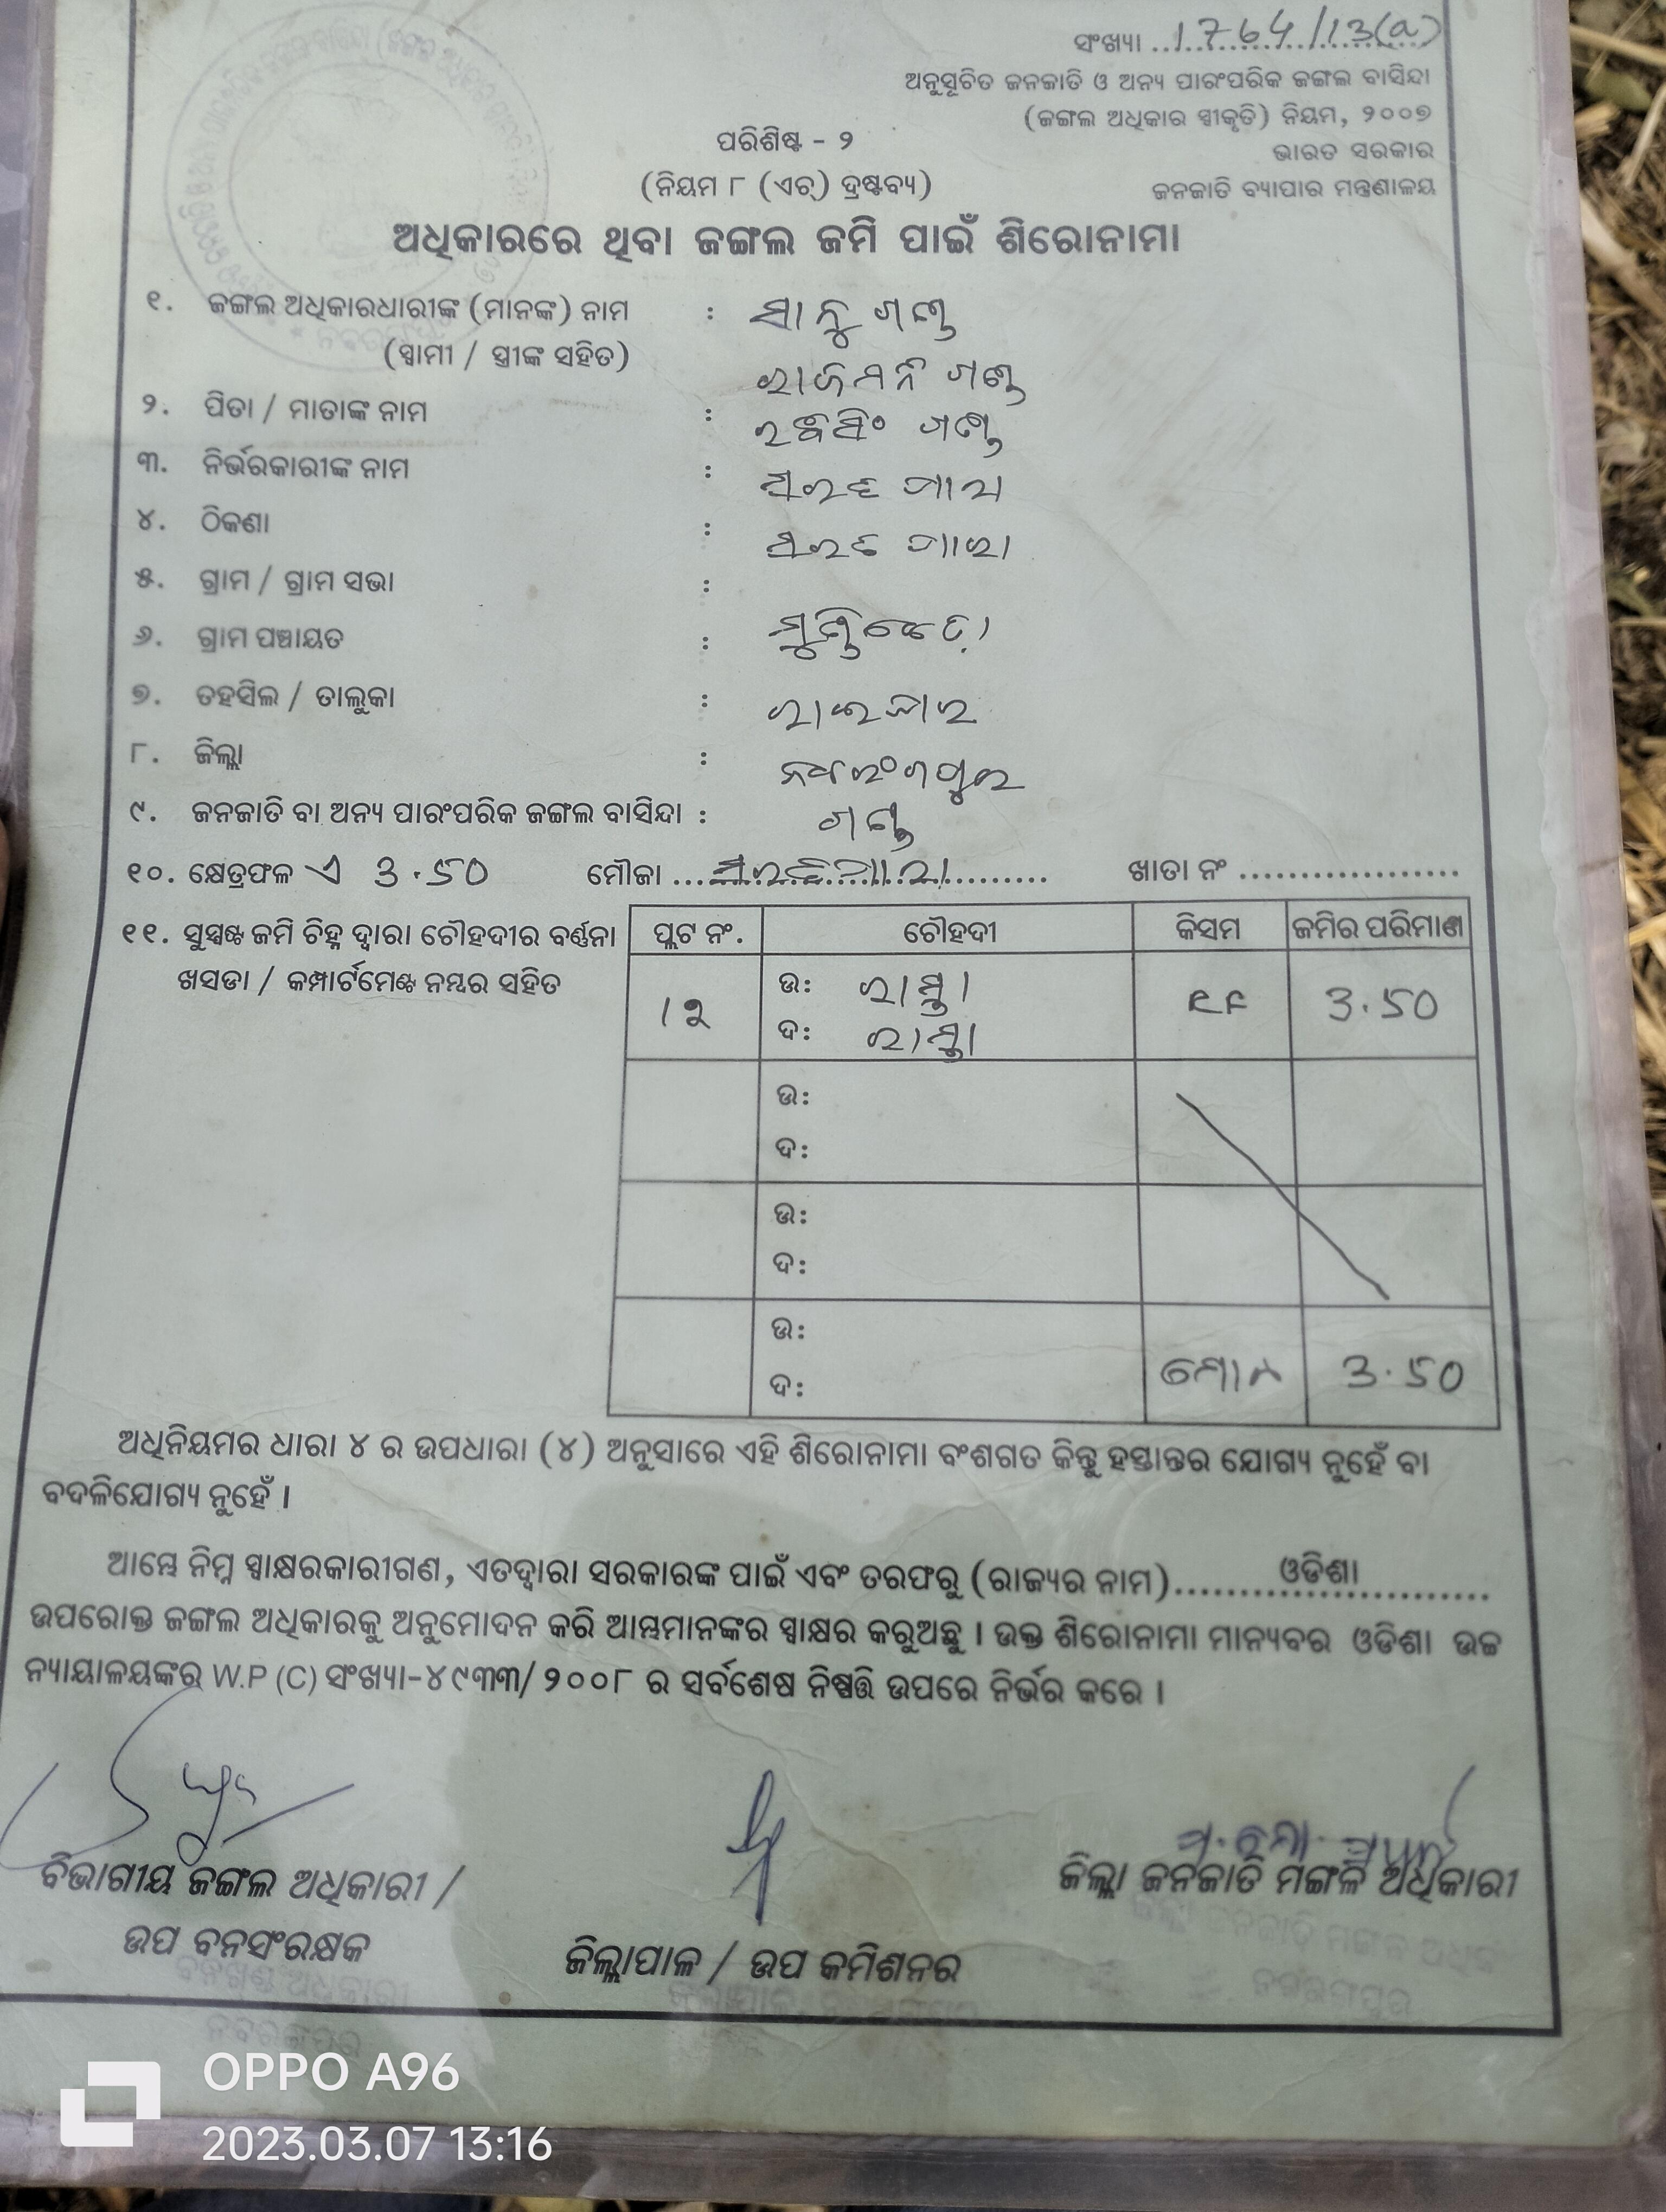 ସଂଖ୍ୟା ..1764/13(a)
ଅନୁସୂଚିତ ଜନଜାତି ଓ ଅନ୍ୟ ପାରଂପରିକ ଜଙ୍ଗଲ ବାସିନ୍ଦା
(ଜଙ୍ଗଲ ଅଧିକାର ସ୍ୱୀକୃତି) ନିୟମ, ୨୦୦୭
ଭାରତ ସରକାର
ଜନଜାତି ବ୍ୟାପାର ମନ୍ତ୍ରଣାଳୟ
ପରିଶିଷ୍ଟ - ୨
(ନିୟମ ୮ (ଏଚ୍) ଦ୍ରଷ୍ଟବ୍ୟ)
ଅଧିକାରରେ ଥିବା ଜଙ୍ଗଲ ଜମି ପାଇଁ ଶିରୋନାମା
୧. ଜଙ୍ଗଲ ଅଧିକାରଧାରୀଙ୍କ (ମାନଙ୍କ) ନାମ : ସାନୁ ଗଣ୍ଡ
(ସ୍ୱାମୀ / ସ୍ତ୍ରୀଙ୍କ ସହିତ) ରାଜମନି ଗଣ୍ଡ
୨. ପିତା / ମାତାଙ୍କ ନାମ : ଗଣ୍ଡ
୩. ନିର୍ଭରକାରୀଙ୍କ ନାମ :
୪. ଠିକଣା :
୫. ଗ୍ରାମ / ଗ୍ରାମ ସଭା :
୬. ଗ୍ରାମ ପଞ୍ଚାୟତ :
୭. ତହସିଲ / ତାଲୁକା : ରାଇଘର
୮. ଜିଲ୍ଲା : ନବରଂଗପୁର
୯. ଜନଜାତି ବା ଅନ୍ୟ ପାରଂପରିକ ଜଙ୍ଗଲ ବାସିନ୍ଦା : ଗଣ୍ଡ
୧୦. କ୍ଷେତ୍ରଫଳ ଏ 3.50 ମୌଜା ଖାତା ନଂ ..................
୧୧. ସୁସ୍ପଷ୍ଟ ଜମି ଚିହ୍ନ ଦ୍ୱାରା ଚୌହଦୀର ବର୍ଣ୍ଣନା ପ୍ଲଟ ନଂ. ଚୌହଦୀ କିସମ ଜମିର ପରିମାଣ
ଖସଡା / କମ୍ପାର୍ଟମେଣ୍ଟ ନମ୍ବର ସହିତ
ଉ: ରାସ୍ତା
ଦ: ରାସ୍ତା
RF 3.50
ଉ:
ଦ:
ଉ:
ଦ:
ଉ:
ଦ: ମୋଟ 3.50
ଅଧିନିୟମର ଧାରା ୪ ର ଉପଧାରା (୪) ଅନୁସାରେ ଏହି ଶିରୋନାମା ବଂଶଗତ କିନ୍ତୁ ହସ୍ତାନ୍ତର ଯୋଗ୍ୟ ନୁହେଁ ବା
ବଦଳିଯୋଗ୍ୟ ନୁହେଁ ।
ଆମ୍ଭେ ନିମ୍ନ ସ୍ୱାକ୍ଷରକାରୀଗଣ, ଏତଦ୍ୱାରା ସରକାରଙ୍କ ପାଇଁ ଏବଂ ତରଫରୁ (ରାଜ୍ୟର ନାମ).......ଓଡିଶା.......
ଉପରୋକ୍ତ ଜଙ୍ଗଲ ଅଧିକାରକୁ ଅନୁମୋଦନ କରି ଆମ୍ଭମାନଙ୍କର ସ୍ୱାକ୍ଷର କରୁଅଛୁ । ଉକ୍ତ ଶିରୋନାମା ମାନ୍ୟବର ଓଡିଶା ଉଚ୍ଚ
ନ୍ୟାୟାଳୟଙ୍କର W.P (C) ସଂଖ୍ୟା-୪୯୩୩/ ୨୦୦୮ ର ସର୍ବଶେଷ ନିଷ୍ପତ୍ତି ଉପରେ ନିର୍ଭର କରେ ।
ବିଭାଗୀୟ ଜଙ୍ଗଲ ଅଧିକାରୀ /
ଉପ ବନସଂରକ୍ଷକ
ଜିଲ୍ଲାପାଳ / ଉପ କମିଶନର
ଜିଲ୍ଲା ଜନଜାତି ମଙ୍ଗଳ ଅଧିକାରୀ
ବନଖଣ୍ଡ ଅଧିକାରୀ
ନବରଙ୍ଗପୁର
OPPO A96
2023.03.07 13:16